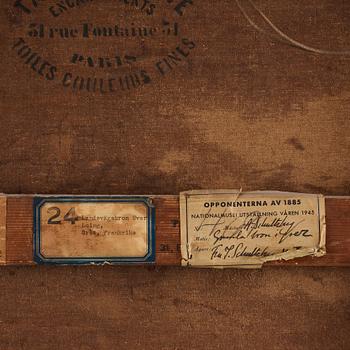 ENCADREMENTS
31 rue Fontaine 31
PARIS
TOILES COULEURS FINES
24
Landsvägsbron över
Loing,
Grèz, Frankrike
OPPONENTERNA AV 1885
NATIONALMUSEI UTSTÄLLNING VÅREN 1945
Schultzberg
Gamla bron i Grez
Motiv:
Ägare: Fru J. Schultzberg